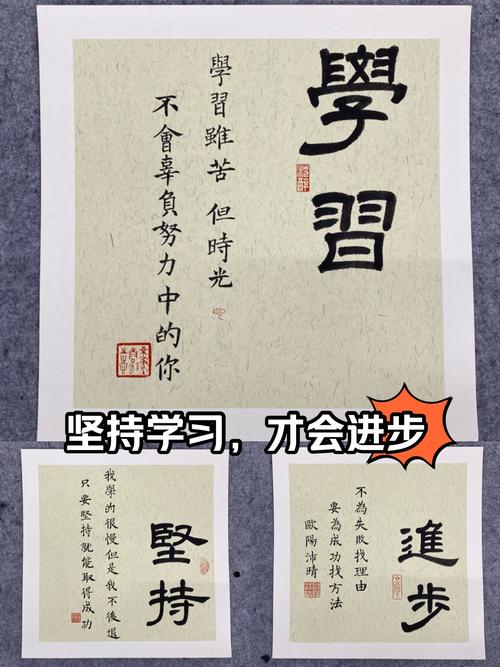 學習
學習雖苦 但時光
不會辜負努力中的你
坚持学习，才会进步
堅持
我學的很慢但是我不後退
只要堅持就能取得成功
進步
不為失敗找理由
要為成功找方法
歐陽沛晴